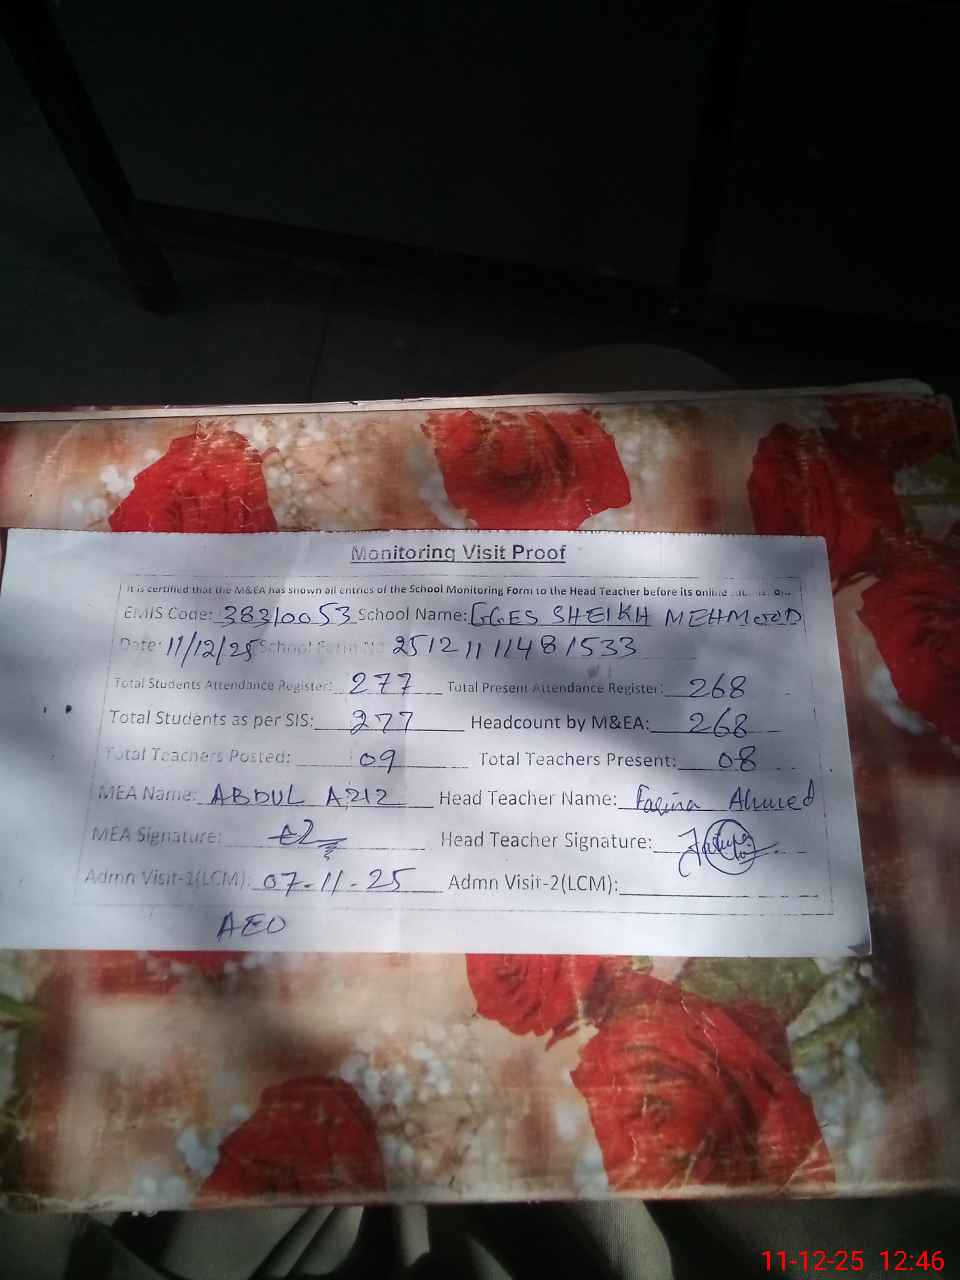 Monitoring Visit Proof
It is certified that the M&EA has shown all entries of the School Monitoring Form to the Head Teacher before its online
EMIS Code: 38310053 School Name: GGES SHEIKH MEHMOOD
Date: 11/12/25 School Form No 25121111481533
Total Students Attendance Register: 277 Total Present Attendance Register: 268
Total Students as per SIS: 277 Headcount by M&EA: 268
Total Teachers Posted: 09 Total Teachers Present: 08
MEA Name: ABDUL AZIZ Head Teacher Name: Ahmed
MEA Signature: Head Teacher Signature:
Admn Visit-1(LCM): 07-11-25 Admn Visit-2(LCM):
AEO
11-12-25 12:46